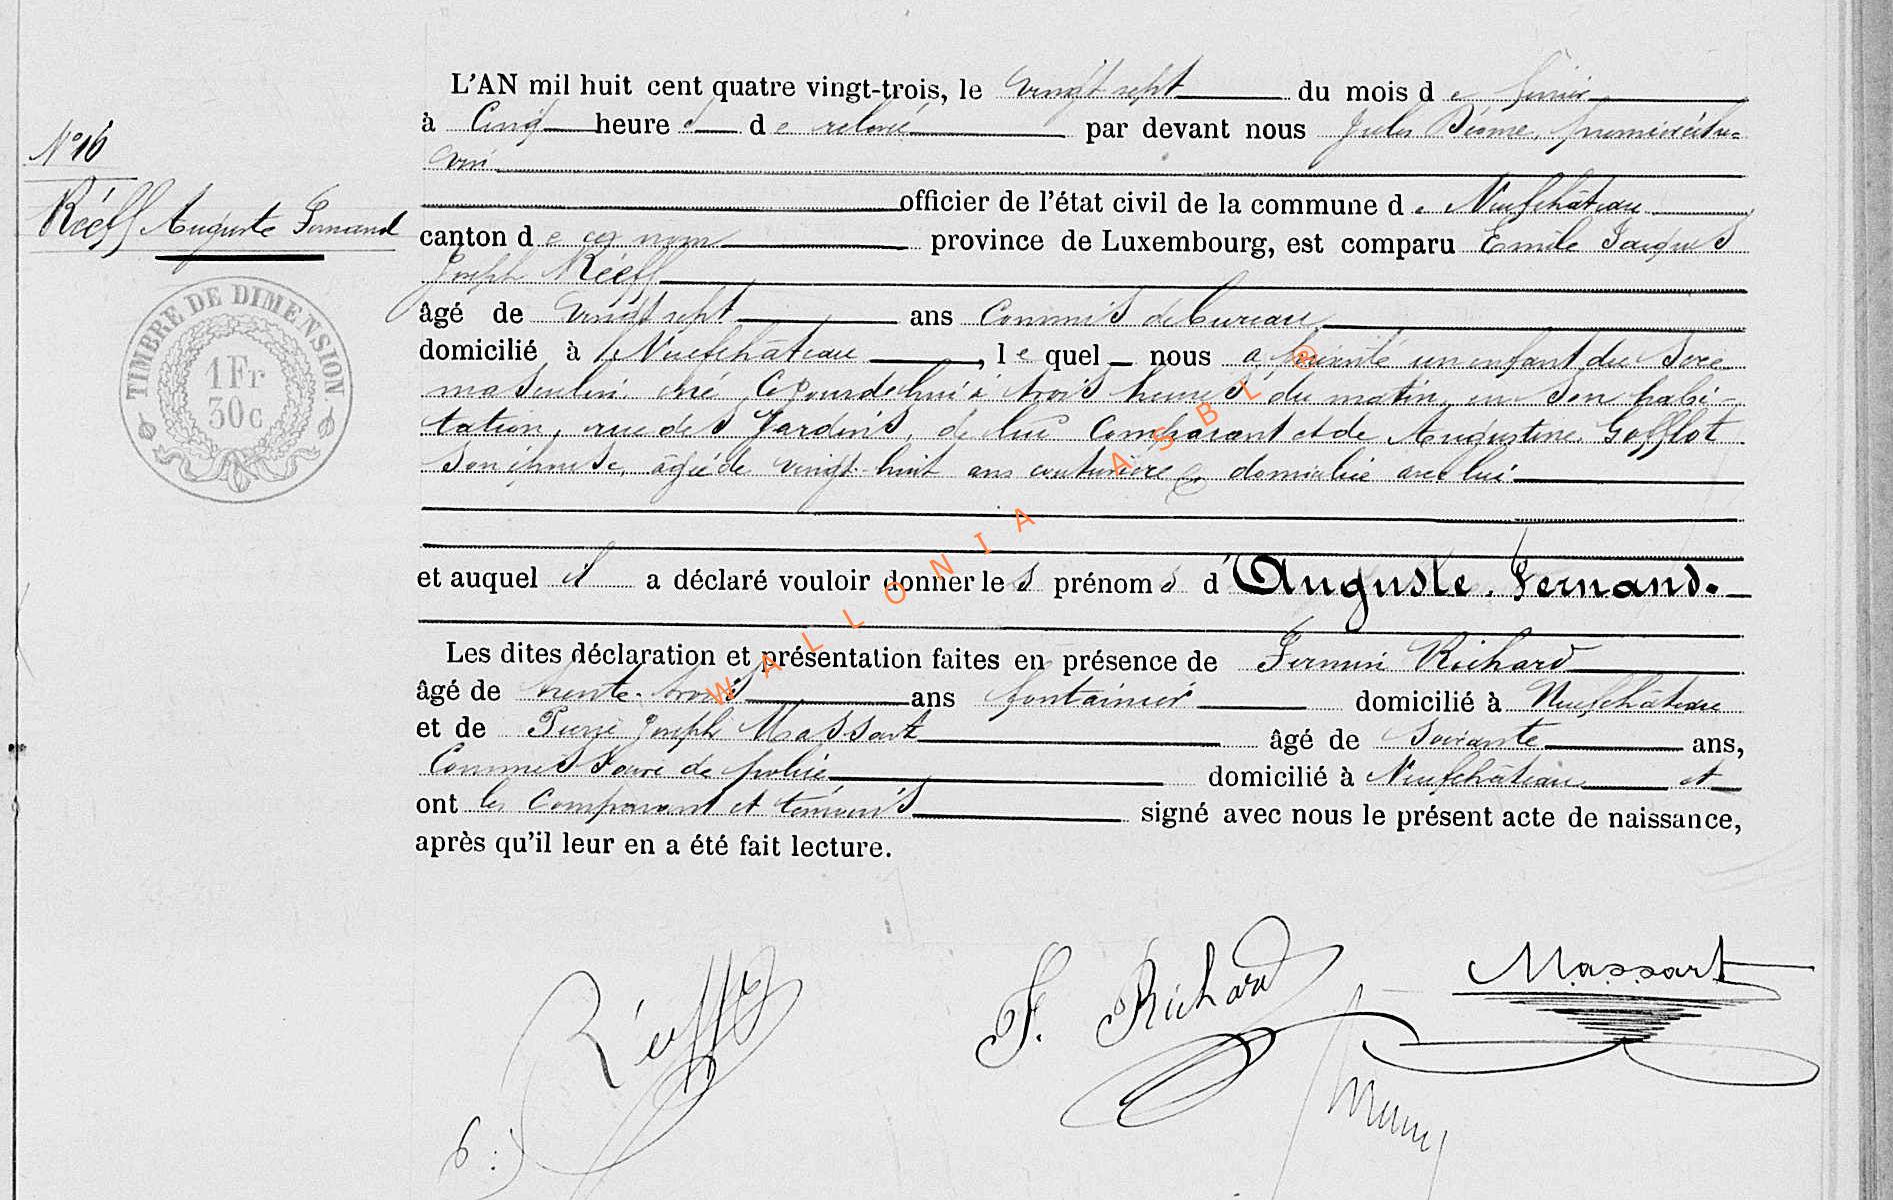 L'AN mil huit cent quatre vingt-trois, le vingt sept du mois de février
à Cinq heures de relevé par devant nous Jules premier éche-
vin
officier de l'état civil de la commune de Neufchâteau
N° 16
Réeff Auguste Fernand
canton de ce nom province de Luxembourg, est comparu Emile Jacques
Joseph Réeff
âgé de vingt sept ans commis de bureau
domicilié à Neufchâteau, lequel nous a présenté un enfant du sexe
masculin né aujourd'hui à trois heures du matin, en son habi-
tation, rue des Jardins, de lui Comparant et de Augustine Gofflot
son épouse, âgée de vingt-huit ans couturière domiciliée avec lui
et auquel il a déclaré vouloir donner les prénoms d'Auguste. Fernand.
Les dites déclaration et présentation faites en présence de Firmin Richard
âgé de trente-trois ans fontainier domicilié à Neufchâteau
et de Pierre Joseph Massart âgé de Soixante ans,
Commissaire de police domicilié à Neufchâteau et
ont les Comparant et témoins signé avec nous le présent acte de naissance,
après qu'il leur en a été fait lecture.
TIMBRE DE DIMENSION
1 Fr
30 c
WALLONIA ASBL ®
Réeff
F. Richard
Massart